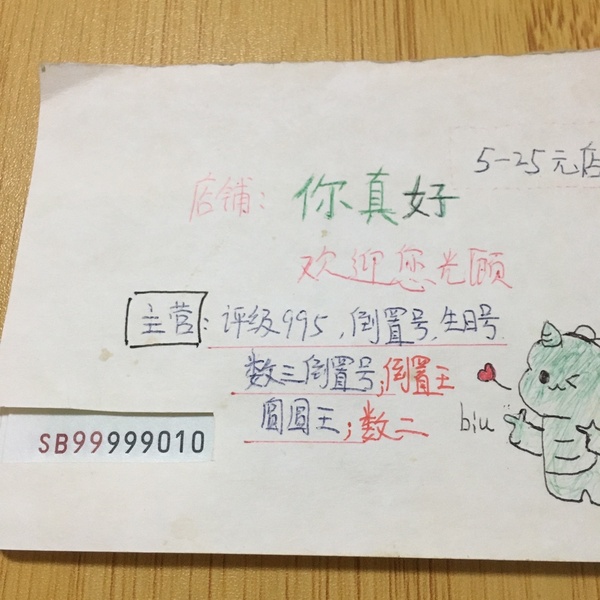 5-25元店
店铺：你真好
欢迎您光顾
主营：评级995，倒置号、生日号
数三倒置号；倒置王
圆圆王；数二
biu
SB99999010